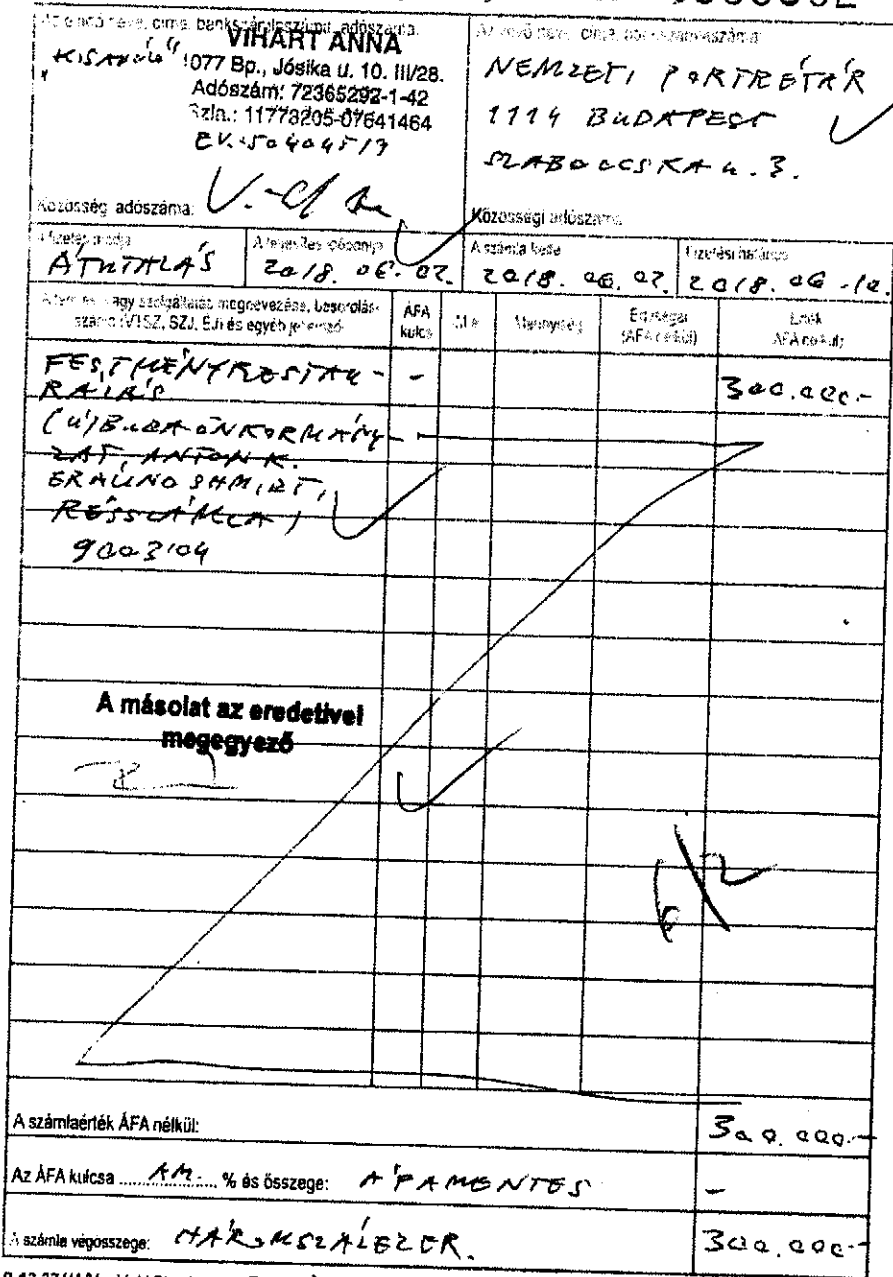 Az eladó neve, címe, bankszámlaszáma, adószáma:
VIHART ANNA
"KISADÓZÓ"
1077 Bp., Jósika u. 10. III/28.
Adószám: 72365292-1-42
Szla.: 11773205-07641464
EV.: 50404517
Közösség adószáma:
Az vevő neve, címe, bankszámlaszáma:
NEMZETI PORTRÉTÁR
1114 BUDAPEST
SZABOLCSKA u. 3.
Közösségi adószáma:
A fizetés módja
ÁTUTALÁS
A teljesítés időpontja
2018. 06. 02.
A számla kelte
2018. 06. 02.
Fizetési határidő
2018. 06. 10.
A termék vagy szolgáltatás megnevezése, besorolási
száma (VTSZ, SZJ, ÉJ) és egyéb jellemző
ÁFA
kulcs
M.e.
Mennyiség
Egységár
(ÁFA nélkül)
Érték
ÁFA nélkül
FESTMÉNYRESTAU-
RÁLÁS
-
300.000.-
(Ú)BUDA ÖNKORMÁNY-
ZAT, ANTON K.
RÉSSZÁMLA)
9003104
A másolat az eredetivel
megegyező
A számlaérték ÁFA nélkül:
300.000.-
Az ÁFA kulcsa AM. % és összege: ÁFAMENTES
-
A számla végösszege: HÁROMSZÁZEZER.
300.000.-